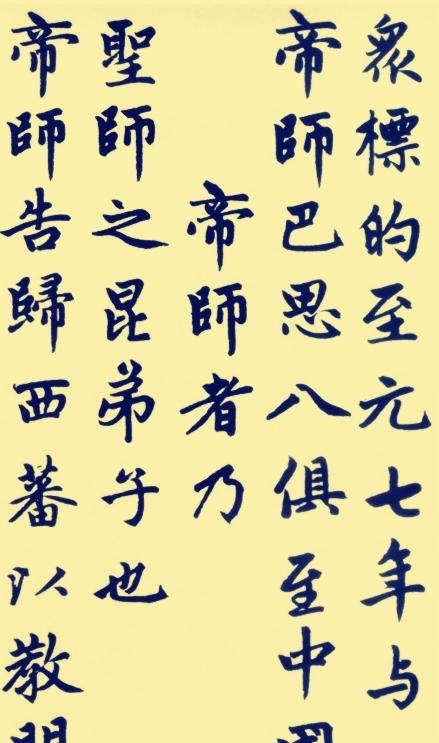 衆標的至元七年与
帝師巴思八俱至中
帝師者乃
聖師之昆弟子也
帝師告歸西蕃以教